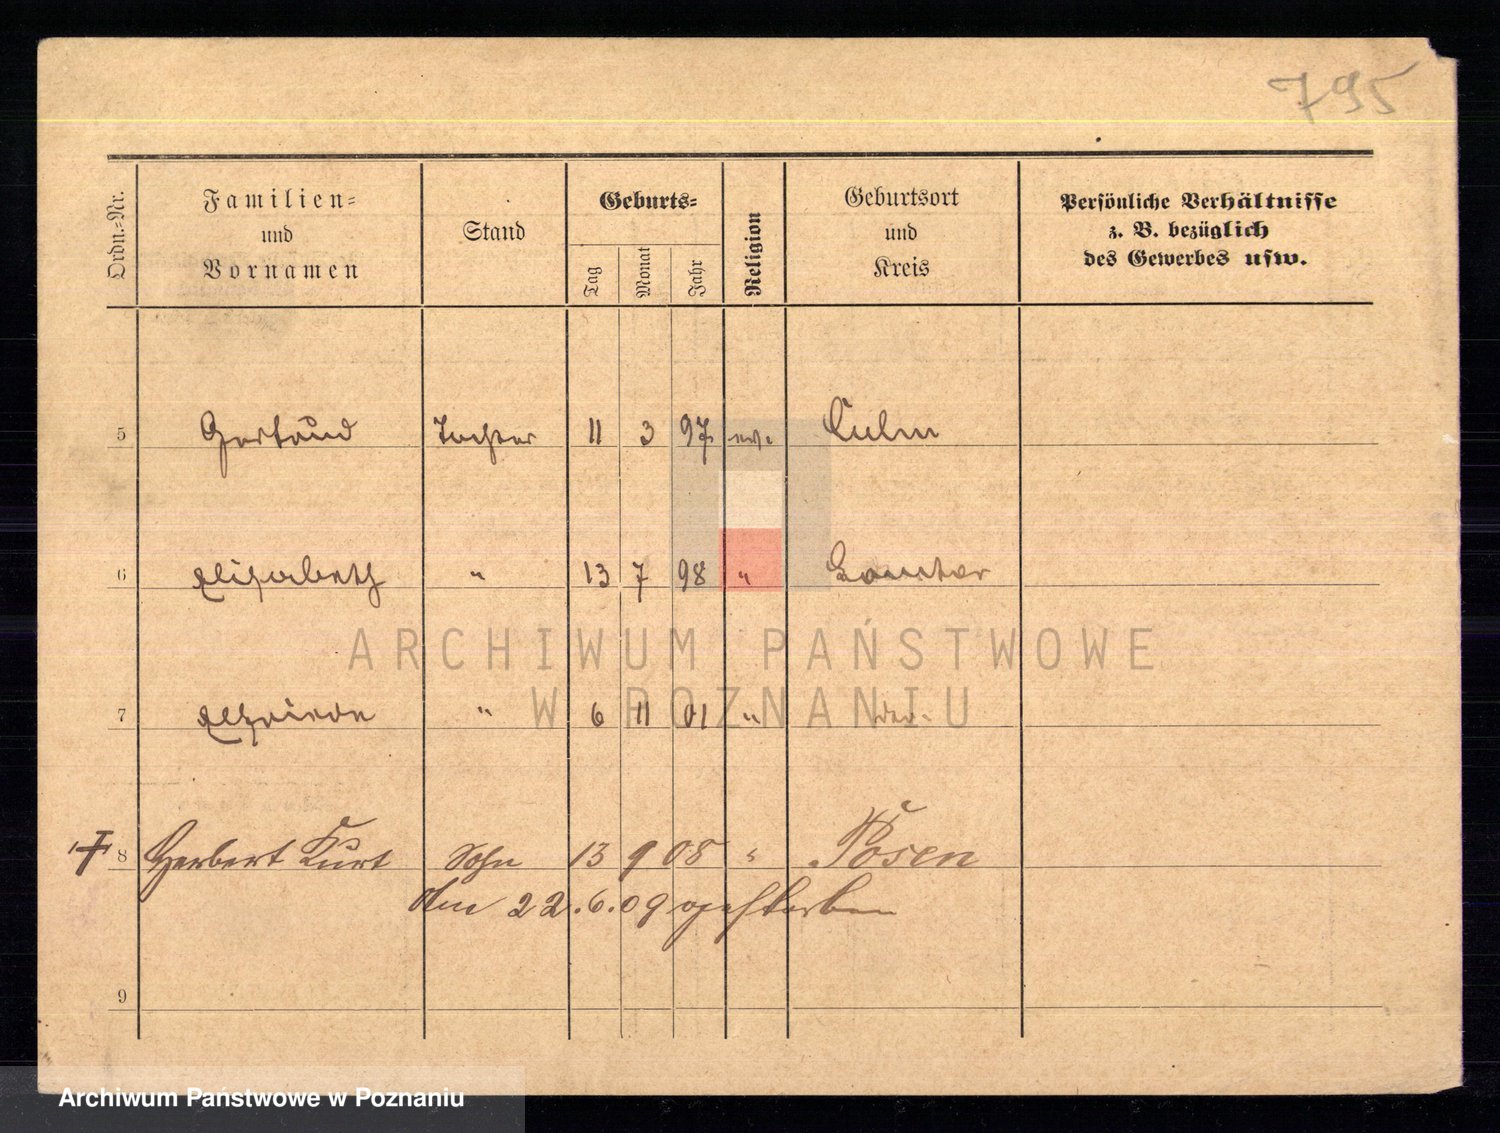 795
Ordn.-Nr.
Familien-
und
Vornamen
Stand
Geburts-
Tag
Monat
Jahr
Religion
Geburtsort
und
Kreis
Persönliche Verhältnisse
z. B. bezüglich
des Gewerbes usw.
5 Gertrud Tochter 11 3 97 ev. Culm
6 Elisabeth " 13 7 98 " Samter
7 Elfriede " 6 11 01 "
† 8 Herbert Kurt Sohn 13 9 08 " Posen
Am 22.6.09 gestorben
9
ARCHIWUM PAŃSTWOWE
W POZNANIU
Archiwum Państwowe w Poznaniu